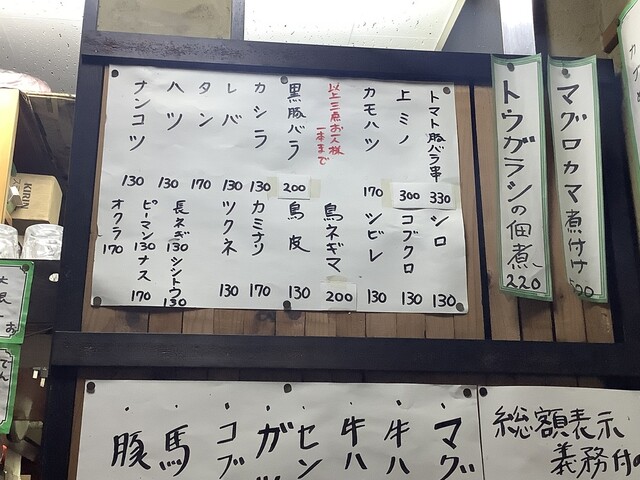 トマト豚バラ串 330
上ミノ 300
カモハツ 170
以上三点お一人様
一本まで
黒豚バラ 200
カシラ 130
レバ 130
タン 170
ハツ 130
ナンコツ 130
シロ 130
コブクロ 130
シビレ 130
鳥ネギマ 200
鳥皮 130
カミナリ 170
ツクネ 130
長ネギ 130
シシトウ 130
ピーマン 130
ナス 170
オクラ 170
マグロカマ煮付け
トウガラシの佃煮 220
総額表示
義務付の
マグ
牛ハ
牛ハ
セン
ガツ
コブ
馬
豚
KIRIN